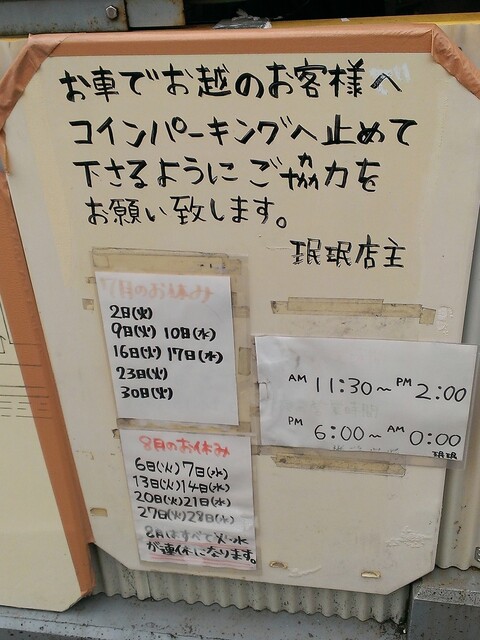 お車でお越のお客様へ
コインパーキングへ止めて
下さるようにご協力を
お願い致します。
珉珉店主
7月のお休み
2日(火)
9日(火) 10日(水)
16日(火) 17日(水)
23日(火)
30日(火)
AM 11:30～PM 2:00
PM 6:00～AM 0:00
珉珉
8月のお休み
6日(火)7日(水)
13日(火)14日(水)
20日(火)21日(水)
27日(火)28日(水)
8月はすべて火・水
が連休になります。